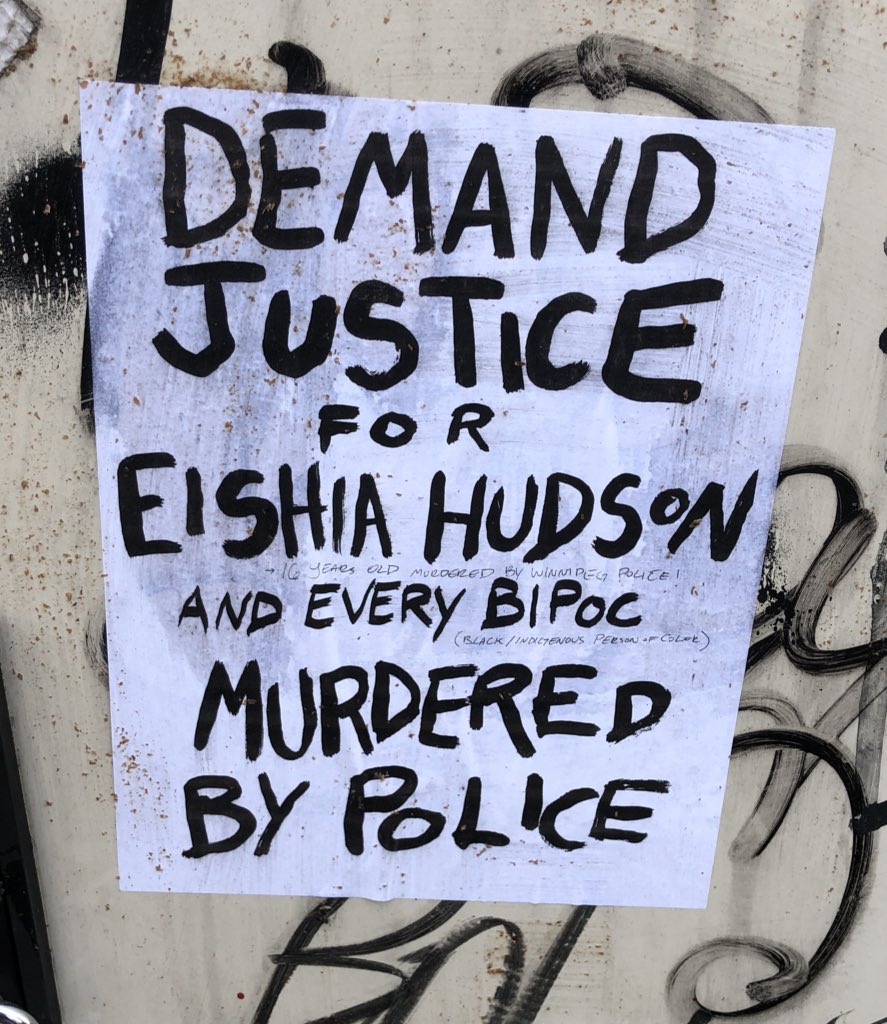 DEMAND
JUSTICE
FOR
EISHIA HUDSON
→ 16 YEARS OLD MURDERED BY WINNIPEG POLICE!
AND EVERY BIPOC
(BLACK/INDIGENOUS PERSON OF COLOR)
MURDERED
BY POLICE